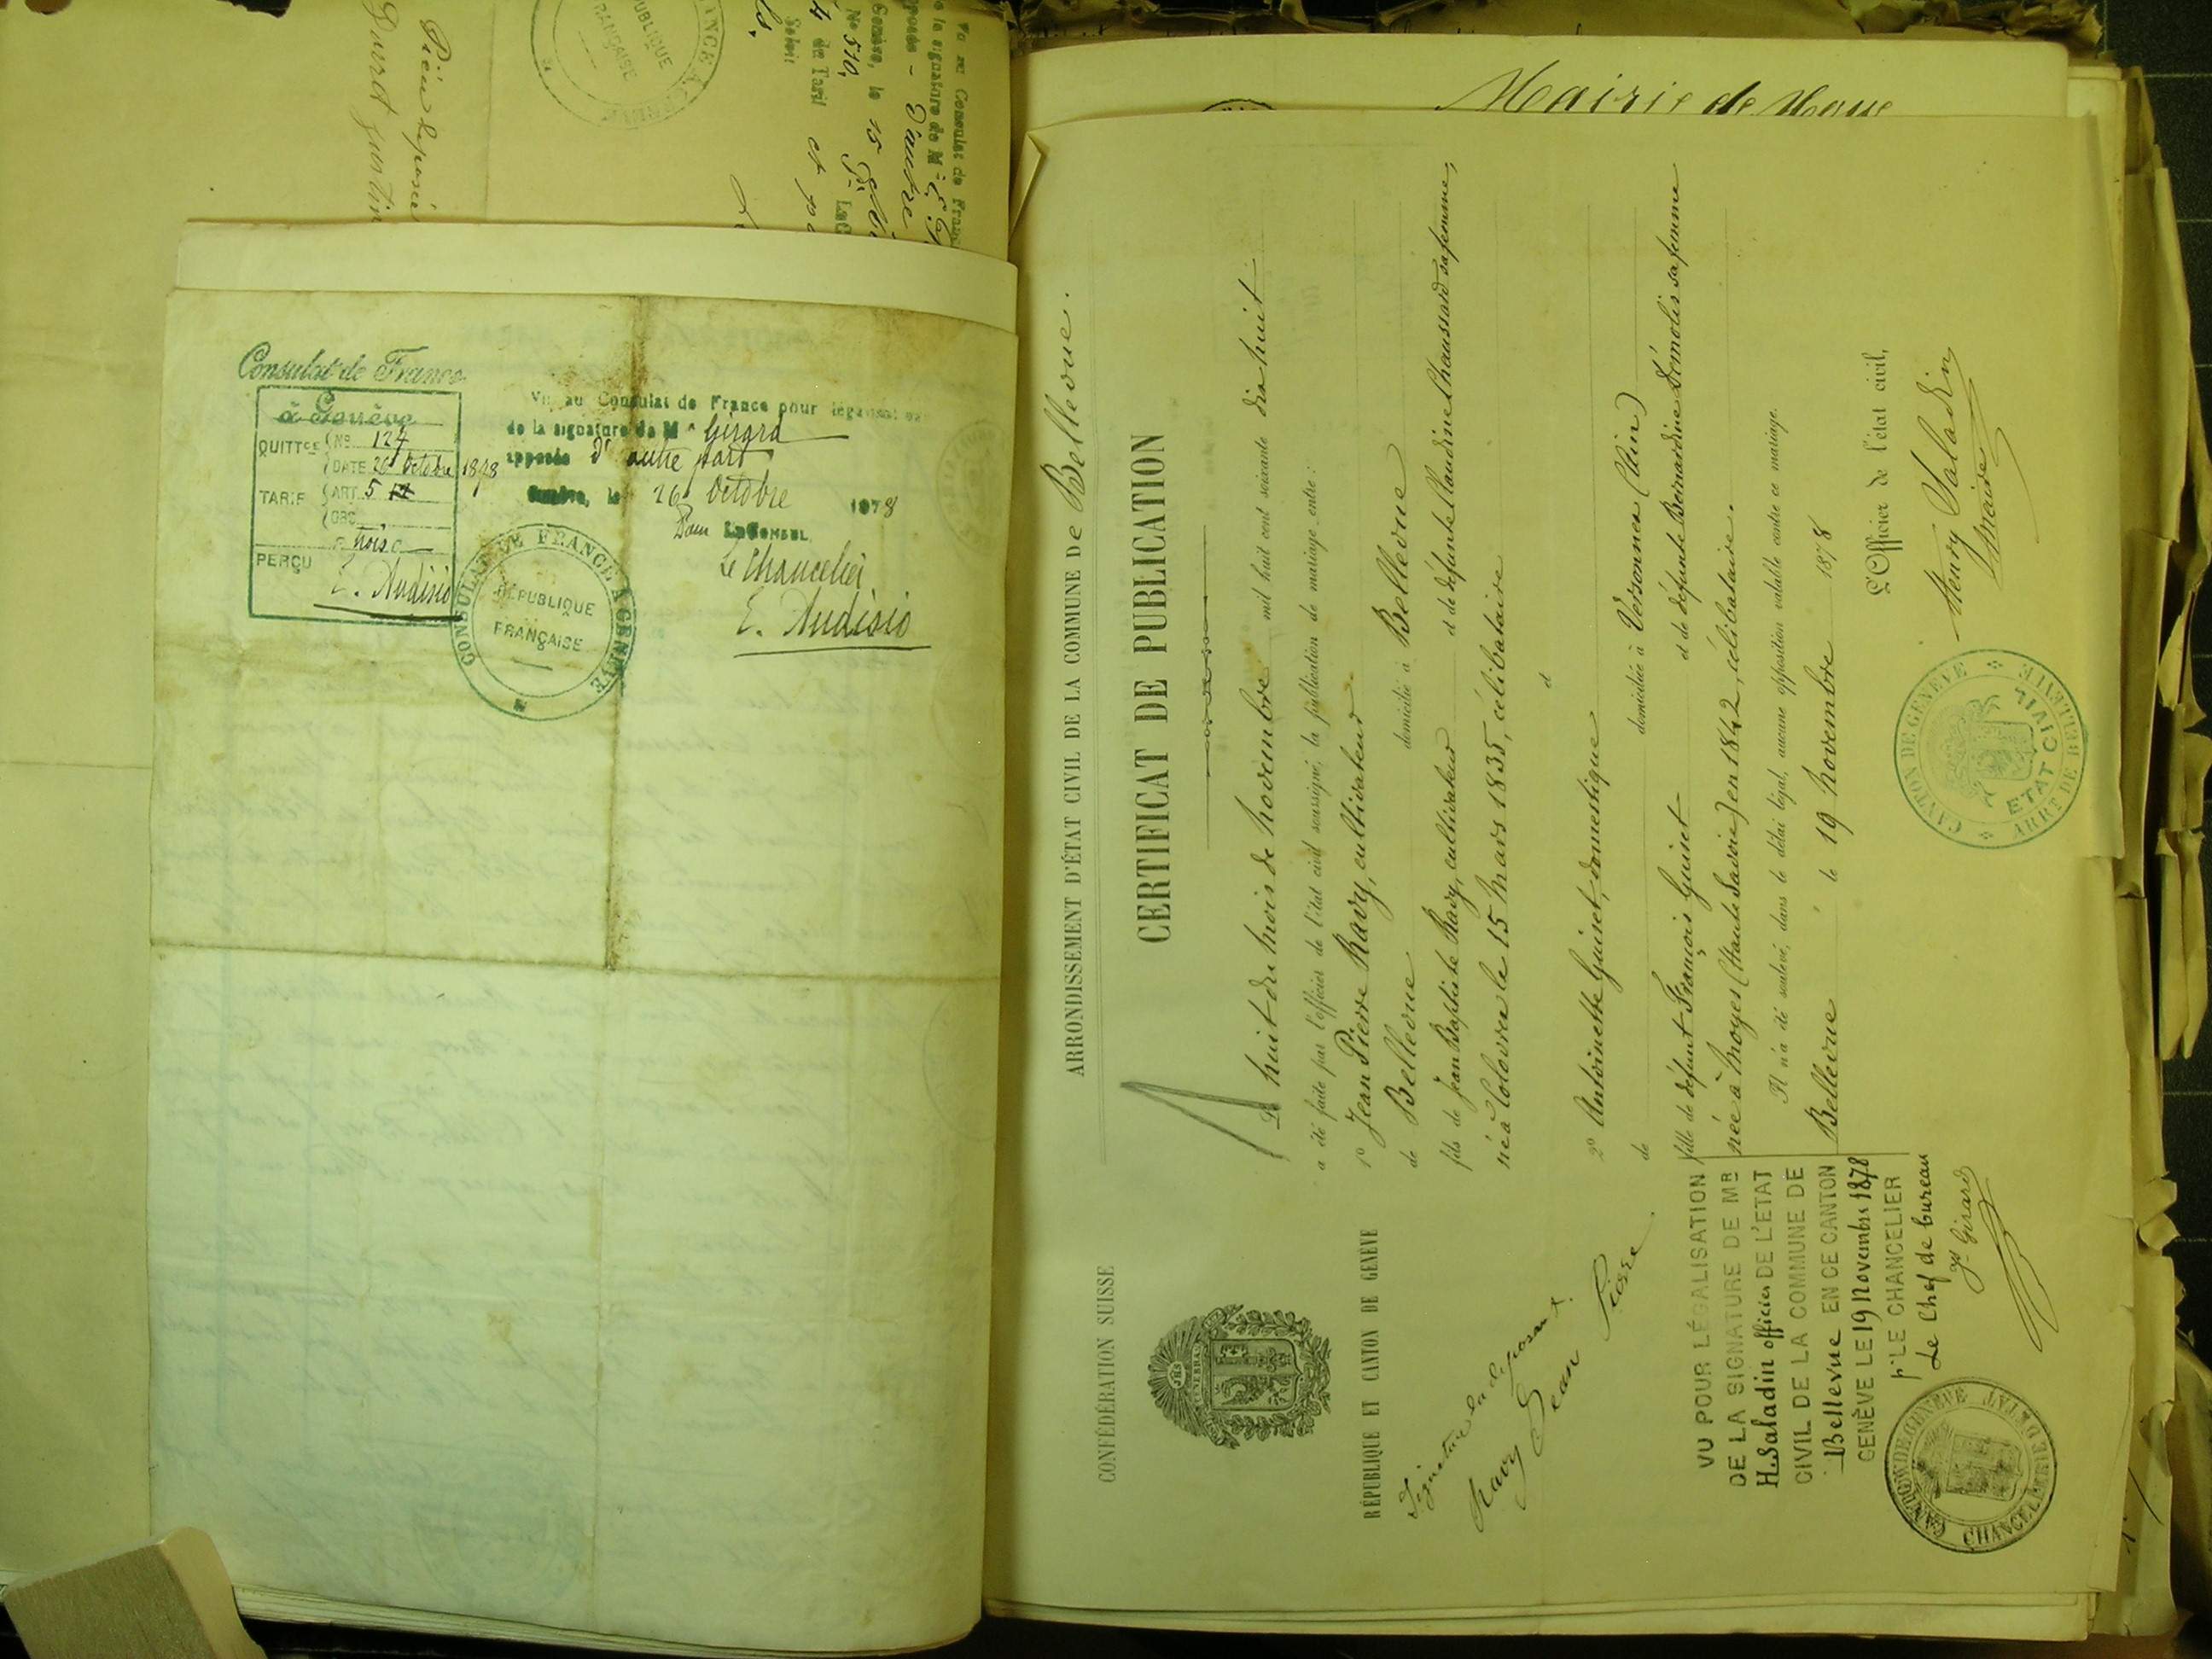 Pièce déposée
Consulat de France
à Genève
QUITTCE No 124
DATE 26 Octobre 1878
TARIF ART 5
OBS
PERÇU
E. Audisio
Vu au Consulat de France pour légalisation
de la signature de Mr Girard
apposée d'autre part
Genève, le 26 Octobre 1878
Pour Le Consul
Le Chancelier
E. Audisio
CONSULAT DE FRANCE A GENÈVE
RÉPUBLIQUE
FRANÇAISE
Mairie de
CONFÉDÉRATION SUISSE
RÉPUBLIQUE ET CANTON DE GENÈVE
ARRONDISSEMENT D'ÉTAT CIVIL DE LA COMMUNE DE Bellevue.
CERTIFICAT DE PUBLICATION
Le huit du mois de Novembre mil huit cent soixante dix huit
a été faite par l'officier de l'état civil soussigné, la publication de mariage entre :
1o Jean Pierre Ravy, cultivateur
de Bellevue domicilié à Bellevue
fils de Jean Baptiste Ravy, cultivateur et de défunte Claudine Chaussard sa femme,
né à Colovrex le 15 Mars 1835, célibataire
et
2o Antoinette Guinet, domestique
de domiciliée à Versonnex (Ain)
fille de défunt François Guinet et de défunte Bernardine Démolis sa femme
née à Moyes (Haute Savoie) en 1842, célibataire.
Il n'a été soulevé, dans le délai légal, aucune opposition valable contre ce mariage.
Bellevue le 19 Novembre 1878
L'Officier de l'état civil,
Henry Saladin
Maire
CANTON DE GENÈVE
ETAT CIVIL
ARRT DE BELLEVUE
Signature du déposant.
Ravy Jean Pierre
VU POUR LÉGALISATION
DE LA SIGNATURE DE MR
H. Saladin officier DE L'ETAT
CIVIL DE LA COMMUNE DE
Bellevue EN CE CANTON
GENÈVE LE 19 Novembre 1878
pr LE CHANCELIER
Le Chef de bureau
Js Girard
CANTON DE GENÈVE
CHANCELLERIE D'ETAT